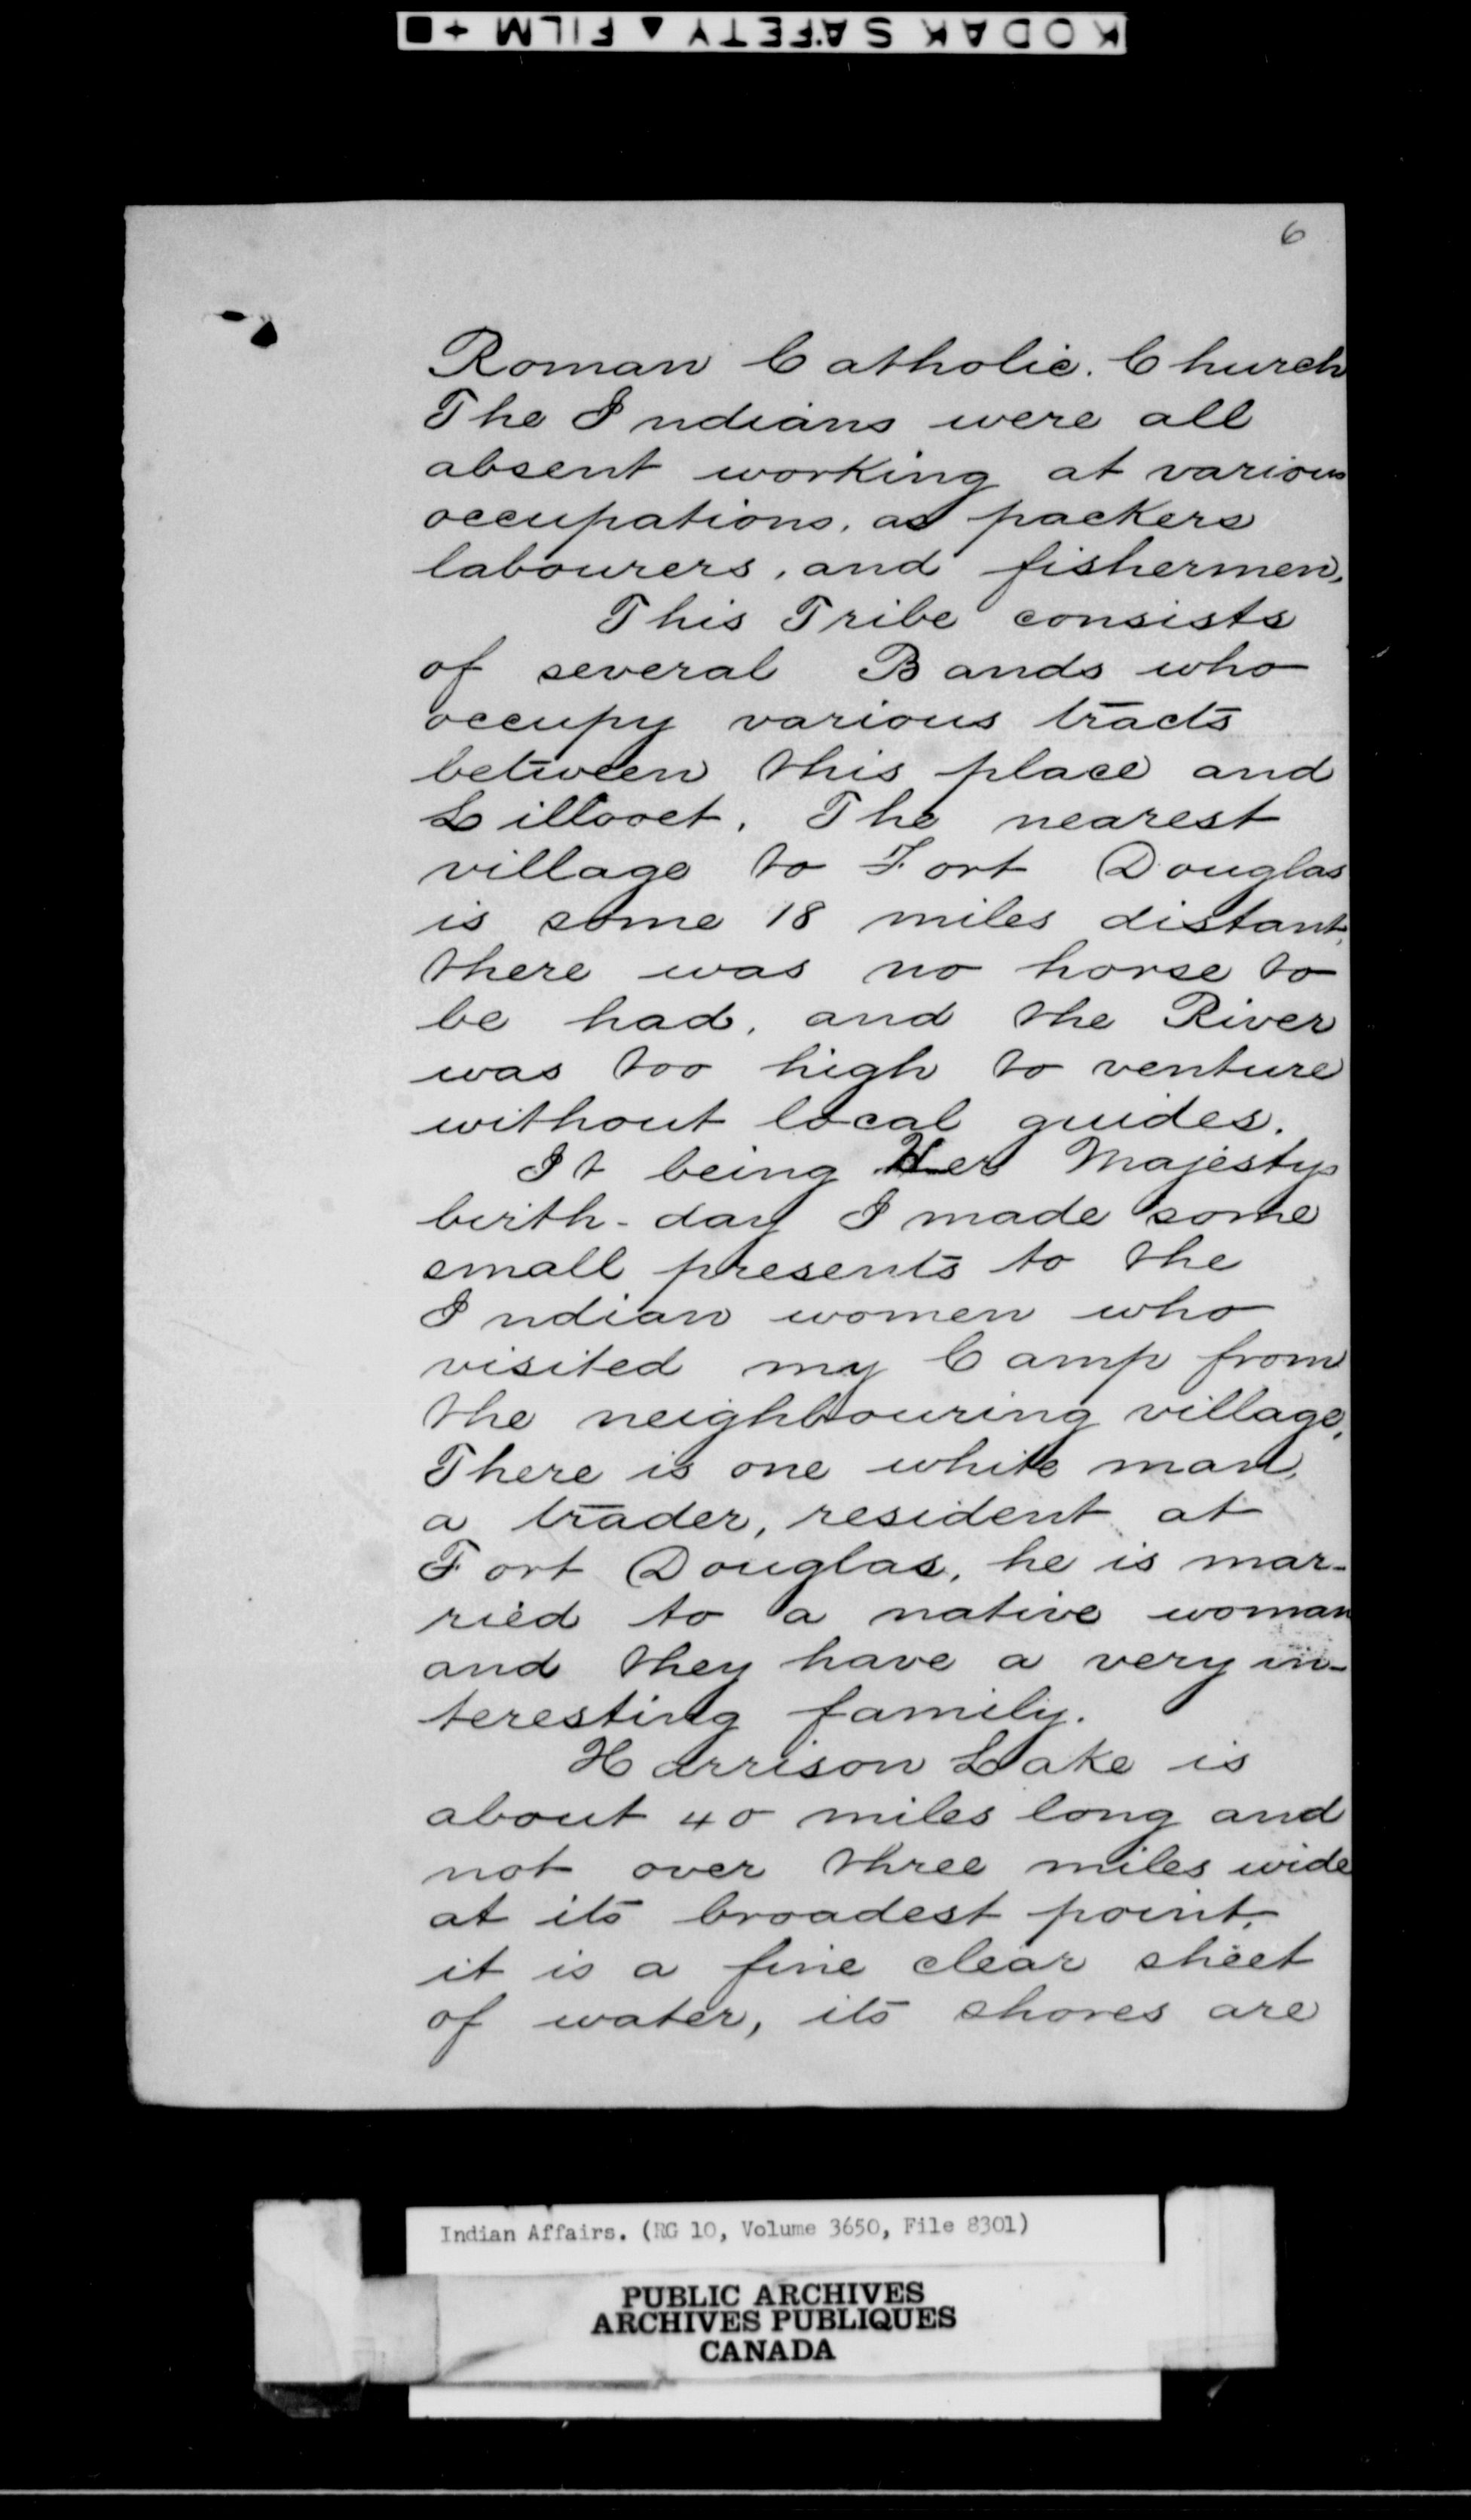 KODAK SAFETY ▲ FILM +
6
Roman Catholic. Church
The Indians were all
absent working at various
occupations, as packers
labourers, and fishermen,
This Tribe consists
of several Bands who
occupy various tracts
between this place and
Lillooet. The nearest
village to Fort Douglas
is some 18 miles distant,
there was no horse to
be had, and the River
was too high to venture
without local guides.
It being Her Majestys
birth-day I made some
small presents to the
Indian women who
visited my Camp from
the neighbouring village,
There is one white man,
a trader, resident at
Fort Douglas, he is mar-
ried to a native woman
and they have a very in-
teresting family.
Harrison Lake is
about 40 miles long and
not over three miles wide
at its broadest point,
it is a fine clear sheet
of water, its shores are
Indian Affairs. (RG 10, Volume 3650, File 8301)
PUBLIC ARCHIVES
ARCHIVES PUBLIQUES
CANADA